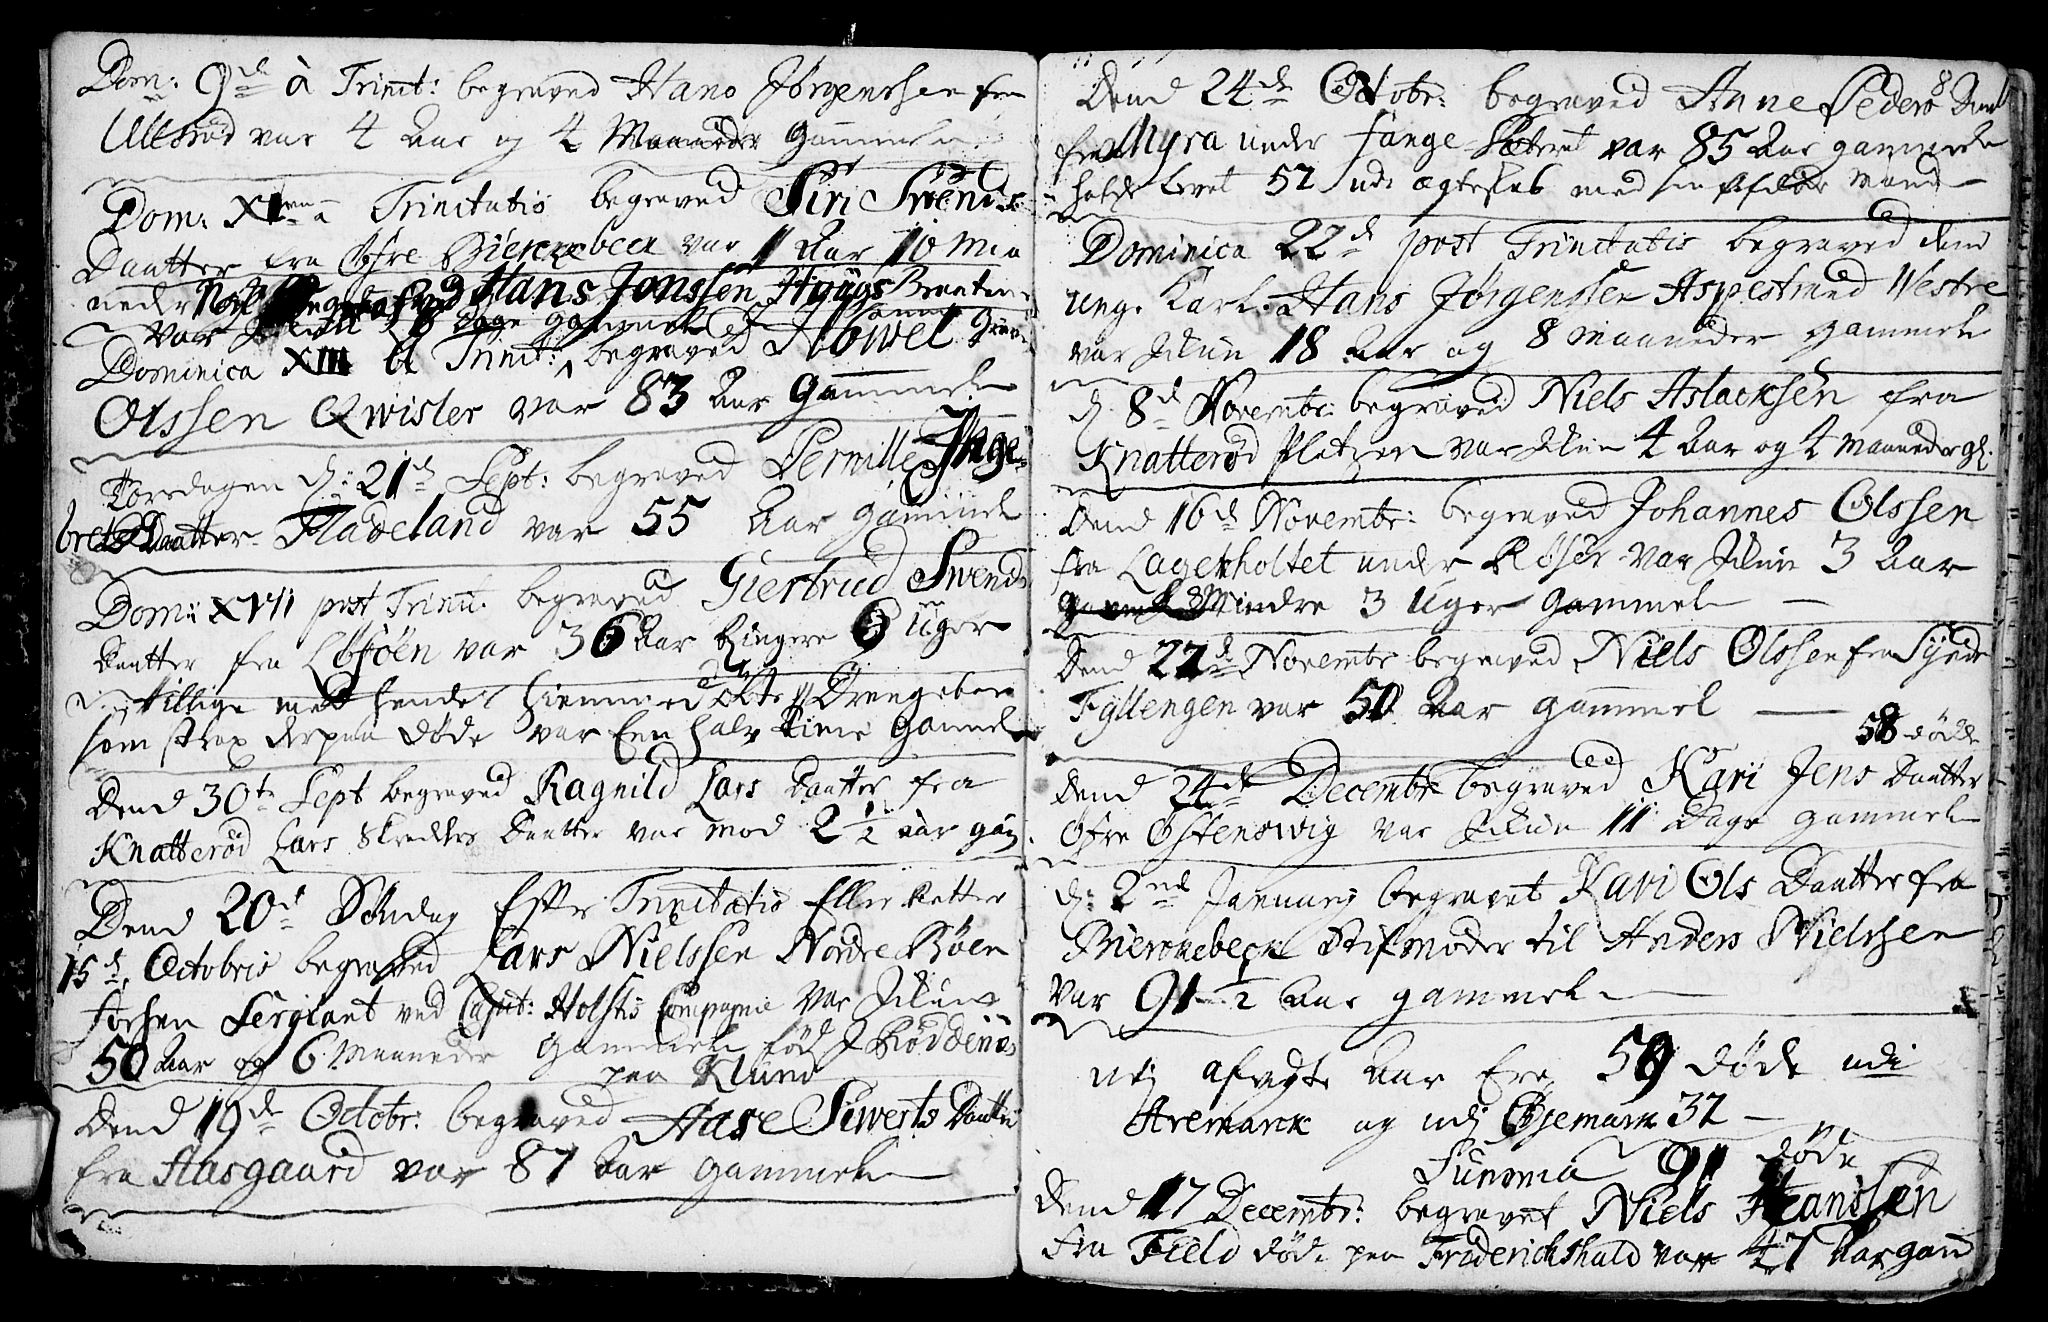 Dom: 9de à Trinit: begraved Hans Jørgenssen fra
Ullsrød var 4 Aar og 4 Maaneder Gammel
Dom: XIma à Trinitatis begraved Siri Swends
Daatter fra Øfre Bierckebeck var 1 Aar 10
neder begraved Hans Jonssen Hyggs Braaten
var 18 dage gammel
Dominica XIII à Trinit: begraved Høwel
Olssen Qwisler var 83 Aar Gammel
Torsdagen d: 21de Sept: begraved Pernille Inge
brets Daatter Fladeland var 55 Aar gammel
Dom: XVII post Trinit: begraved Giertrud Swends
Daatter fra Løføen var 36 Aar Ringere 6 Uger
tillige med hendes hiemmedøbte Drengebarn
som strax derpaa døde var Een halv time Gammel
Dend 30te Sept begraved Ragnild Lars Daatter fra
Knatterød Lars Skredders Daatter var mod 2 1/2 aar gam.
Dend 20de Søndag Efter Trinitatis Eller Retter
15de Octobris begraved Lars Nielssen Nordre Bøen
forhen Sergiant ved Capit: Holsts Compagnie var Ickun
50 Aar og 6 Maaneder Gammel fød I Røddenes
paa Klund
Dend 19de Octobr: begraved Aase Siwerts Daatter
fra Aasgaard var 87 Aar gammel
8
Dend 24de Octobr: begraved Anne Peders Daat
fra Myra under Lange Sæteret var 85 Aar gammel
hafde levet 52 udi ægteskab med sin afdøde Mand
Dominica 22de post Trinitatis begraved dend
ung. Karl Hans Jørgenssen Aspestrand Westre
var Ickun 18 Aar og 8 maaneder Gammel
d. 8de Novembr: begraved Niels Aslacksen fra
Knatterød Pladzen var Ickun 4 Aar og 4 Maaneder gl.
Dend 16de Novembr: begraved Johannes Olssen
fra Lagerholtet under Køser var Ickun 3 Aar
Mindre 3 Uger Gammel
Dend 22de Novembr begraved Niels Olssen fra Synde
Fyllengen var 50 Aar gammel
58 døde
Dend 24de Decembr begraved Kari Jens Daatter
Øfre Østenswig var Ickun 11 Dage gammel
d: 2nd Januarij begravet Kari Ols Daatter fra
Bierckebeck Stifmoder til Anders Nielssen
var 91 1/2 Aar gammel
udj afvigte Aar Ere 59 Døde udi
Aremarck og udj Øjemarck 32
Summa 91 døde
Dend 17 Decembr: begravet Niels Hanssen
fra Field døde paa Friderichshald var 47 Aar gam